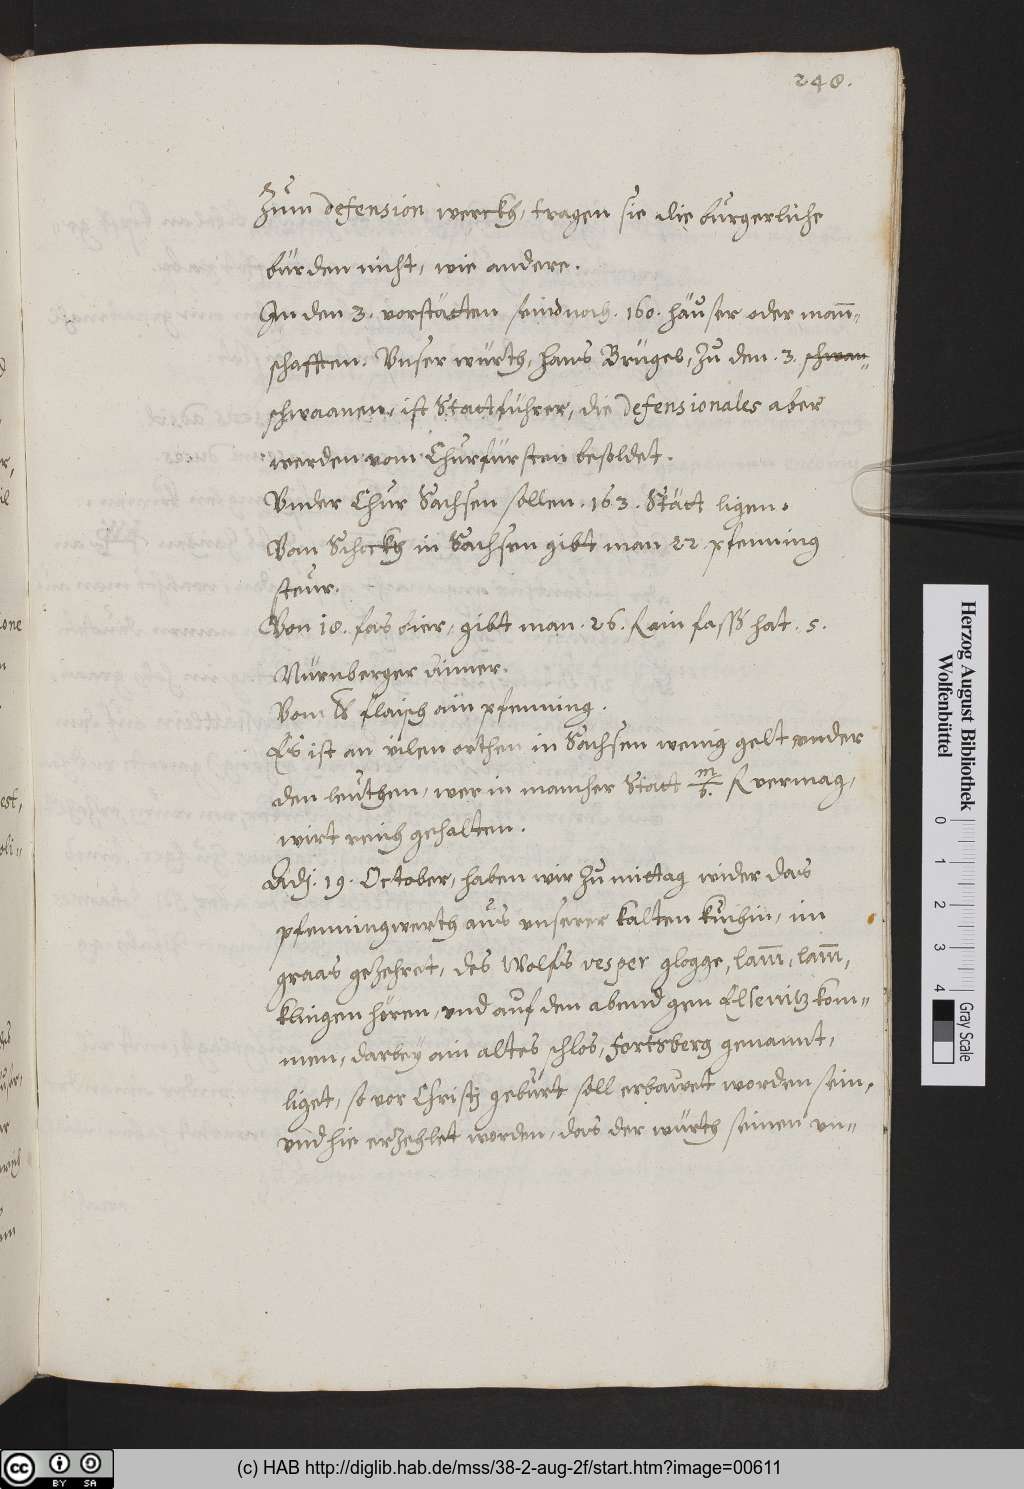 248.
Zum defension werckh, tragen sie die bürgerliche
bürden nicht, wie andere.
In den 3. vorstätten seind noch. 160. häuser oder mañ-
schafften. Vnser würth, Hans Brügel, zu den .3. schwan-
schwaanen, ist Stattführer, die Defensionales aber
werden vom Churfürsten besoldet.
Vnder Chur Sachsen sollen. 163. Stätt ligen.
Vom Schockh in Sachsen gibt man 22. pfenning
steur.
Von 18. fas bier, gibt man. 26. f ain fassß hat. 5.
Nürnberger aimer.
Vom ℔ flaisch ain pfenning.
Es ist an vilen orthen in Sachsen wenig gelt vnder
den leuthen, wer in mancher Statt m/6. f vermag,
wirt reich gehalten.
Adj. 19. October, haben wir zu mittag wider das
pfenningwerth aus vnserer kalten kuchin, im
graas gezehret, des Wolfs vesper glogge, lam̃, lam̃,
klingen hören, vnd auf den abend gen Elsenitz kom-
men, darbey ain altes schlos, Fortsberg genannt,
liget, so vor Christj geburt soll erbauet worden sein,
vnd hie erzehlet worden, das der würth seinen vn-
one
est,
oli-
Herzog August Bibliothek
Wolfenbüttel
0 1 2 3 4
Gray Scale
cc BY SA
(c) HAB http://diglib.hab.de/mss/38-2-aug-2f/start.htm?image=00611